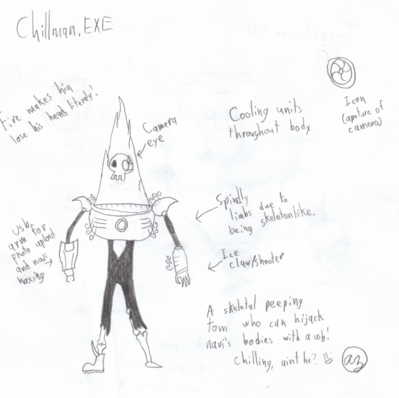 Chillman.EXE
Fire makes him
lose his
Camera
eye
Cooling units
throughout body
Icon
(aperture of
camera)
Spindly
limbs due to
being skeletonlike.
Usb
arm for
photo upload
and navi
haxing
Ice
claw/shooter
A skeletal peeping
tom who can hijack
navi's bodies with a usb!
Chilling, aint he?